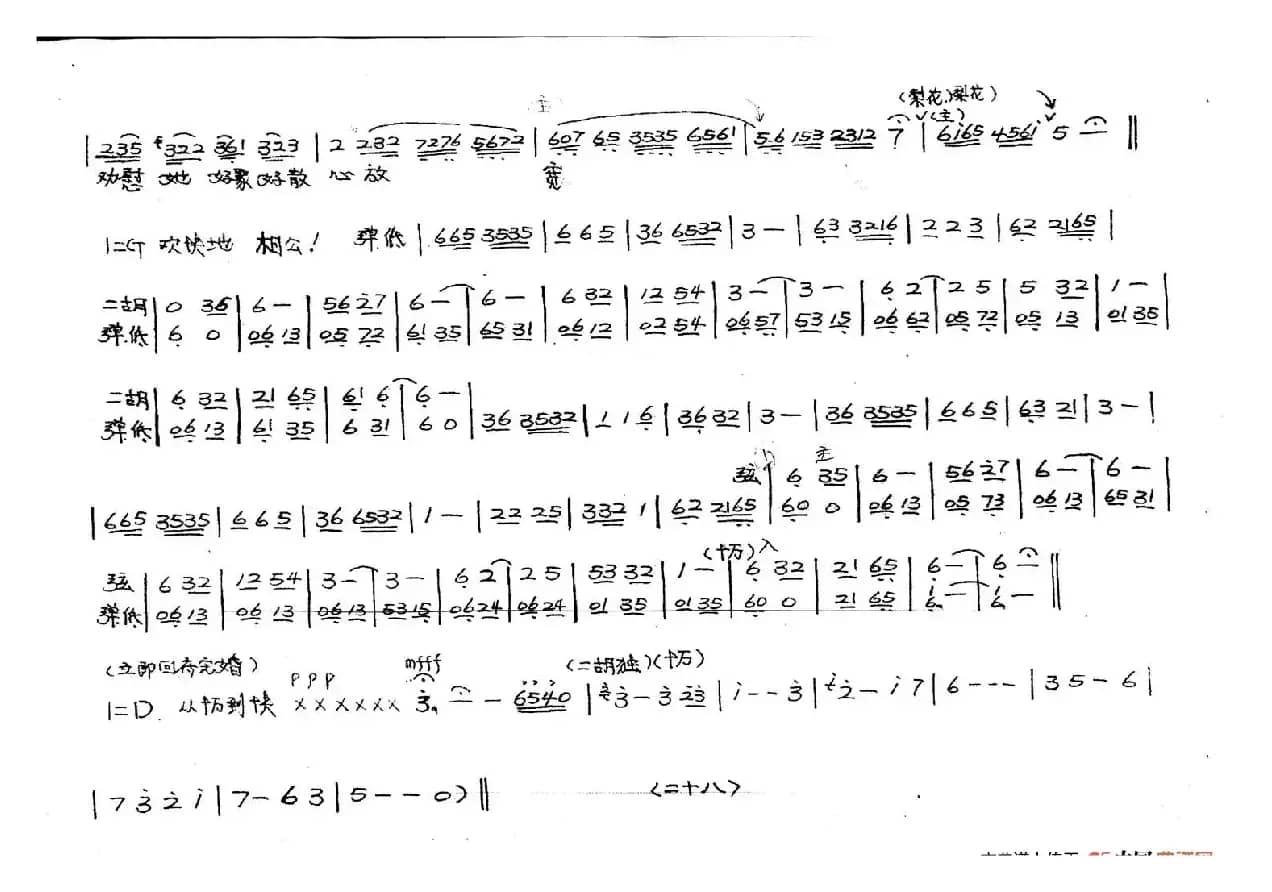 (梨花)(梨花)
(主)
| 235 322 361 323 | 2 232 7276 5672 | 607 65 3535 6561 | 56 153 2312 7 | 6i65 4561 5 — ‖
劝慰 她 好聚好散 心 放 宽
1=G 欢快地 相公! 弹低 | 665 3535 | 6 6 5 | 36 6532 | 3 — | 63 3216 | 2 2 3 | 62 2165 |
二胡 | 0 36 | 6 — | 56 27 | 6 — | 6 — | 6 32 | 12 54 | 3 — | 3 — | 6 2 | 2 5 | 5 32 | 1 —
弹低 | 6 0 | 06 13 | 05 72 | 61 35 | 65 31 | 06 12 | 02 54 | 06 57 | 53 15 | 06 62 | 05 72 | 05 13 | 01 35
二胡 | 6 32 | 21 65 | 61 6 | 6 — |
弹低 | 06 13 | 61 35 | 6 31 | 6 0 | 36 3532 | 1 1 6 | 36 32 | 3 — | 36 3535 | 6 6 5 | 63 21 | 3 — |
主
弦 | 6 35 | 6 — | 56 27 | 6 — | 6 —
| 665 3535 | 6 6 5 | 36 6532 | 1 — | 22 25 | 332 1 | 62 2165 | 60 0 | 06 13 | 05 73 | 06 13 | 65 31 |
弦 | 6 32 | 12 54 | 3 — | 3 — | 6 2 | 2 5 | 53 32 | 1 — | 6 32 | 21 65 | 6 — | 6 — ‖
弹低 | 06 13 | 06 13 | 06 13 | 53 15 | 06 24 | 06 24 | 01 35 | 01 35 | 60 0 | 21 65 | 6 — | 6 — ‖
(立即回府完婚) ppp mfff (二胡独)
1=D 从 到快 x x x x x x 3 — — 6540 | 3 — 3 23 | i - - 3 | 2 — i 7 | 6 - - - | 3 5 - 6 |
| 7 3 2 i | 7 — 6 3 | 5 — — 0) ‖ (二十八)